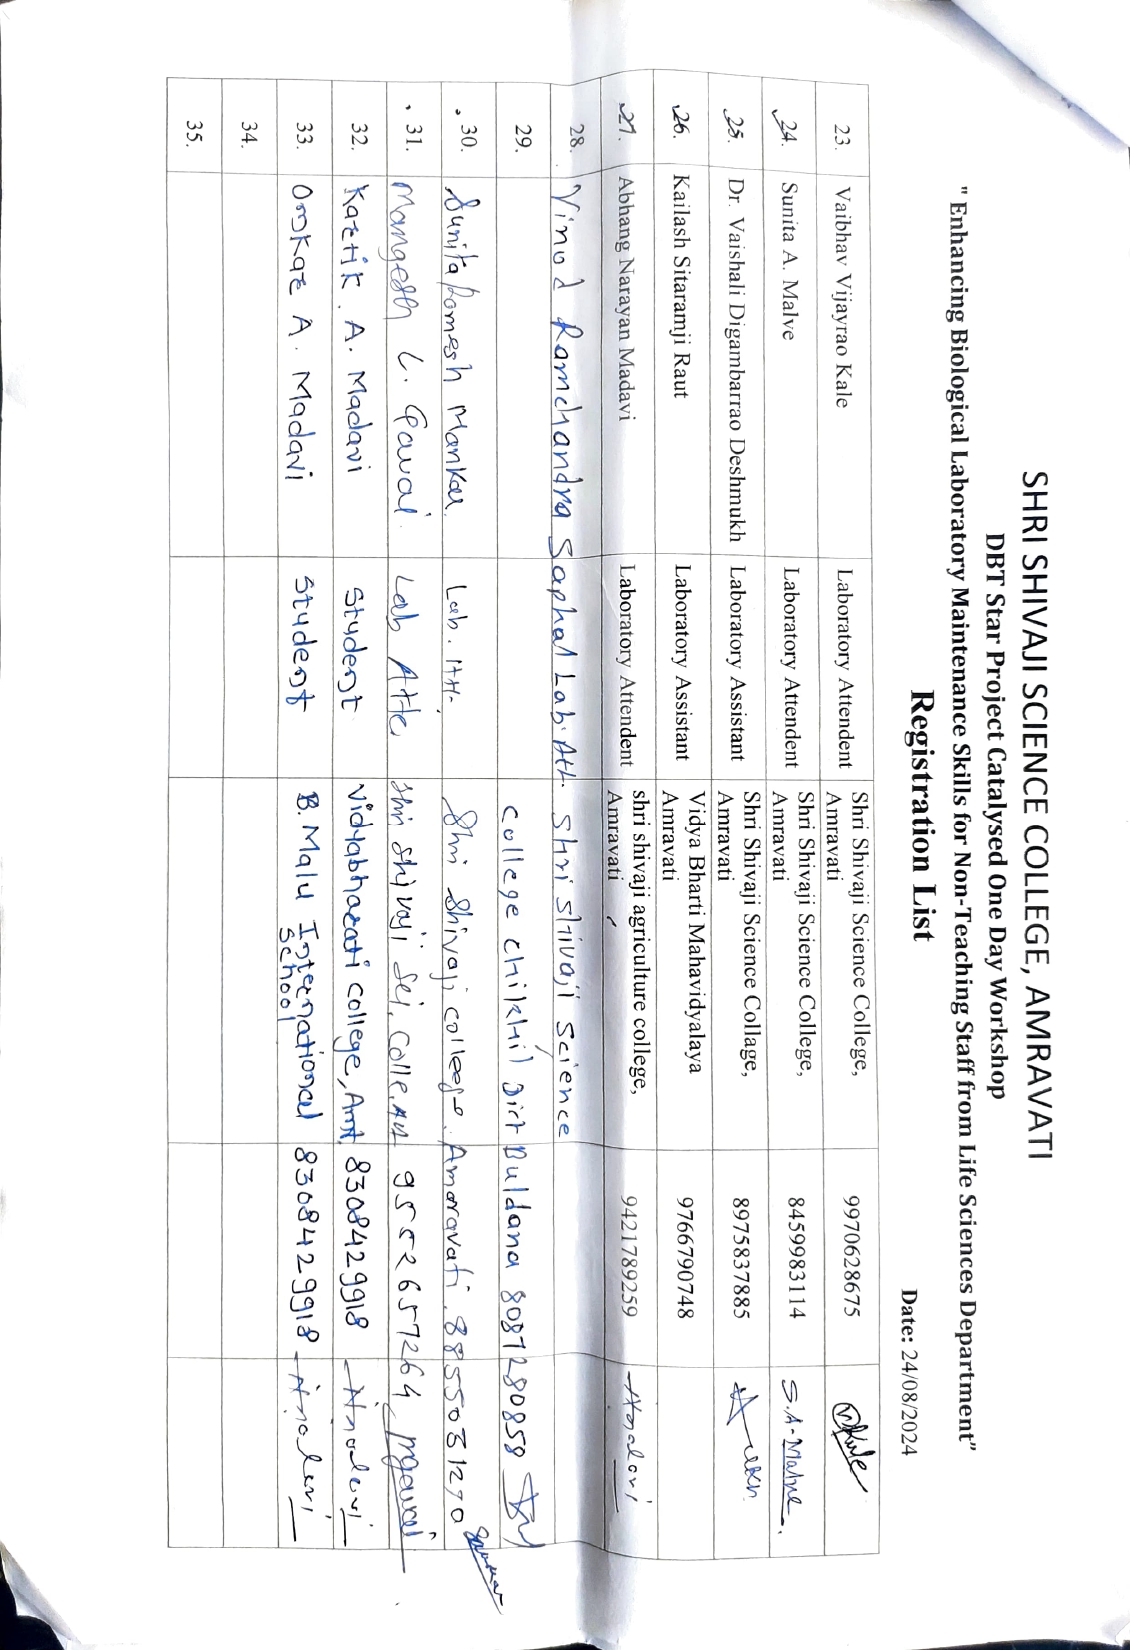 SHRI SHIVAJI SCIENCE COLLEGE, AMRAVATI
DBT Star Project Catalysed One Day Workshop
" Enhancing Biological Laboratory Maintenance Skills for Non-Teaching Staff from Life Sciences Department"
Registration List
Date: 24/08/2024
23. Vaibhav Vijayrao Kale Laboratory Attendent Shri Shivaji Science College, 9970628675
Amravati
24. Sunita A. Malve Laboratory Attendent Shri Shivaji Science College, 8459983114 S.A. Malve
Amravati
25. Dr. Vaishali Digambarrao Deshmukh Laboratory Assistant Shri Shivaji Science Collage, 8975837885
Amravati
26. Kailash Sitaramji Raut Laboratory Assistant Vidya Bharti Mahavidyalaya 9766790748
Amravati
27. Abhang Narayan Madavi Laboratory Attendent shri shivaji agriculture college, 9421789259
Amravati
28. Vinod Ramchandra Saphal Lab. Att. Shri Shivaji Science
29. college chikhli Dist Buldana 8087280858
30. Sunita Romesh Mankar Lab. Att. Shri Shivaji college. Amaravati. 8855031270
31. Mangesh L. Gawai Lab Atte Shri Shivaji Sci. Colle. 9552657264
32. Kartik. A. Madavi Student Vidyabharati college, Amt. 8308429918
33. Omkar A. Madavi Student B. Malu International 8308429918
School
34.
35.